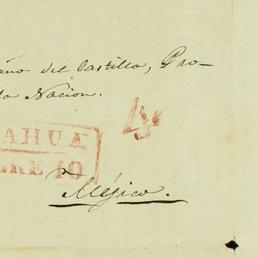 año del Castillo, Pro-
la Nacion.
AHUA
BRE 10
Méjico.